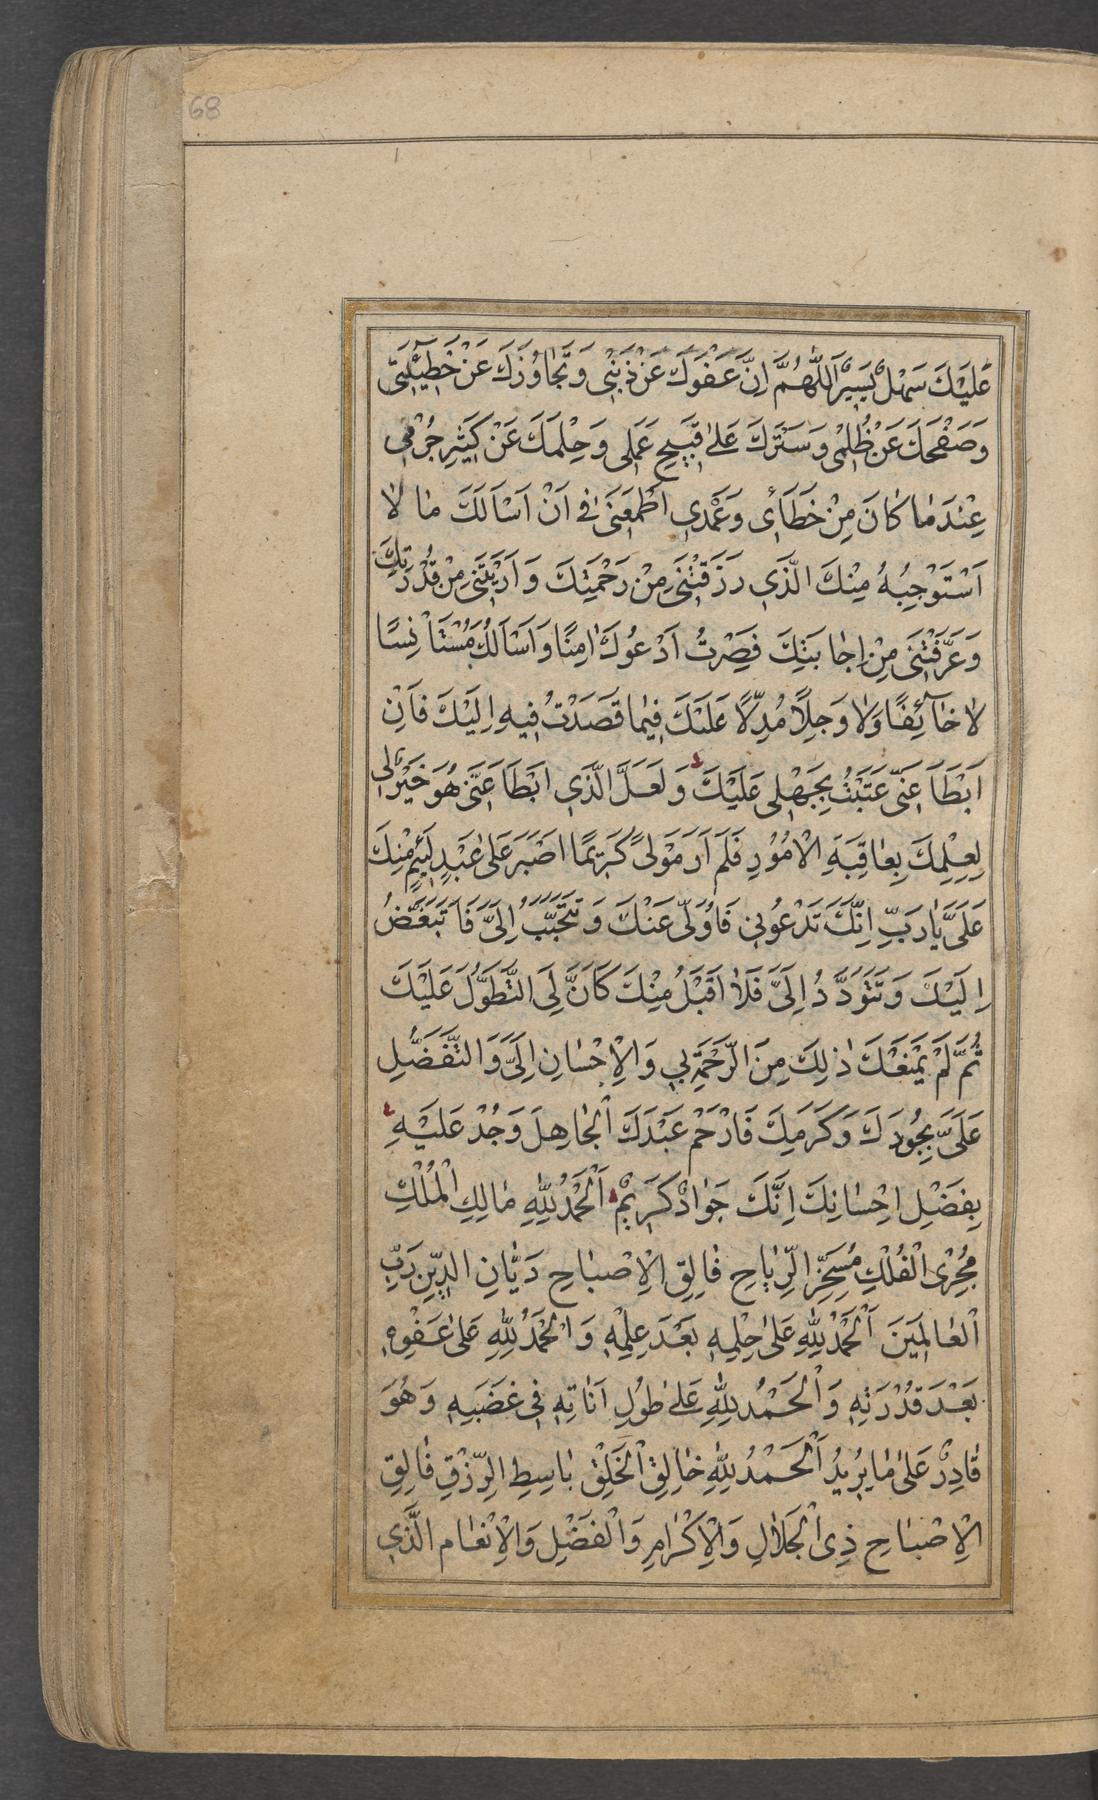 68
عَلَيْكَ سَهْلٌ يَسِيْرٌ اَللّٰهُمَّ اِنَّ عَفْوَكَ عَنْ ذَنْبِيْ وَتَجَاوُزَكَ عَنْ خَطِيْئَتِيْ
وَصَفْحَكَ عَنْ ظُلْمِيْ وَسَتْرَكَ عَلٰى قَبِيْحِ عَمَلِي وَحِلْمَكَ عَنْ كَثِيْرِ جُرْمِي
عِنْدَ مٰا كٰانَ مِنْ خَطَأئِ وَعَمْدِي اَطْمَعَنِي فِي اَنْ اَسْاَلَكَ مٰا لٰا
اَسْتَوْجِبُهُ مِنْكَ الَّذِي رَزَقْتَنِي مِنْ رَحْمَتِكَ وَاَرَيْتَنِي مِنْ قُدْرَتِكَ
وَعَرَّفْتَنِي مِنْ اِجٰابَتِكَ فَصِرْتُ اَدْعُوكَ اٰمِنًا وَاَسْاَلُكَ مُسْتَاْنِسًا
لٰا خٰآئِفًا وَلٰا وَجِلًا مُدِلًّا عَلَيْكَ فِيمٰا قَصَدْتُ فِيهِ اِلَيْكَ فَاِنْ
اَبْطَاَ عَنِّي عَتَبْتُ بِجَهْلِي عَلَيْكَ وَلَعَلَّ الَّذِي اَبْطَاَ عَنِّي هُوَ خَيْرٌ لِي
لِعِلْمِكَ بِعٰاقِبَةِ الْاُمُوْرِ فَلَمْ اَرَ مَوْلًى كَرِيْمًا اَصْبَرَ عَلٰى عَبْدٍ لَئِيْمٍ مِنْكَ
عَلَيَّ يٰا رَبِّ اِنَّكَ تَدْعُونِي فَاُوَلِّي عَنْكَ وَتَتَحَبَّبُ اِلَيَّ فَاَتَبَغَّضُ
اِلَيْكَ وَتَتَوَدَّدُ اِلَيَّ فَلٰا اَقْبَلُ مِنْكَ كَاَنَّ لِيَ التَّطَوُّلَ عَلَيْكَ
ثُمَّ لَمْ يَمْنَعْكَ ذٰلِكَ مِنَ الرَّحْمَةِ بِي وَالْاِحْسٰانِ اِلَيَّ وَالتَّفَضُّلِ
عَلَيَّ بِجُودِكَ وَكَرَمِكَ فَارْحَمْ عَبْدَكَ الْجٰاهِلَ وَجُدْ عَلَيْهِ
بِفَضْلِ اِحْسٰانِكَ اِنَّكَ جَوٰادٌ كَرِيْمٌ اَلْحَمْدُ لِلّٰهِ مٰالِكِ الْمُلْكِ
مُجْرِى الْفُلْكِ مُسَخِّرِ الرِّيٰاحِ فٰالِقِ الْاِصْبٰاحِ دَيّٰانِ الدِّيْنِ رَبِّ
الْعٰالَمِيْنَ اَلْحَمْدُ لِلّٰهِ عَلٰى حِلْمِهِ بَعْدَ عِلْمِهِ وَالْحَمْدُ لِلّٰهِ عَلٰى عَفْوِهِ
بَعْدَ قُدْرَتِهِ وَالْحَمْدُ لِلّٰهِ عَلٰى طُولِ اَنٰاتِهِ فِي غَضَبِهِ وَهُوَ
قٰادِرٌ عَلٰى مٰا يُرِيْدُ اَلْحَمْدُ لِلّٰهِ خٰالِقِ الْخَلْقِ بٰاسِطِ الرِّزْقِ فٰالِقِ
الْاِصْبٰاحِ ذِى الْجَلٰالِ وَالْاِكْرٰامِ وَالْفَضْلِ وَالْاِنْعٰامِ الَّذِي